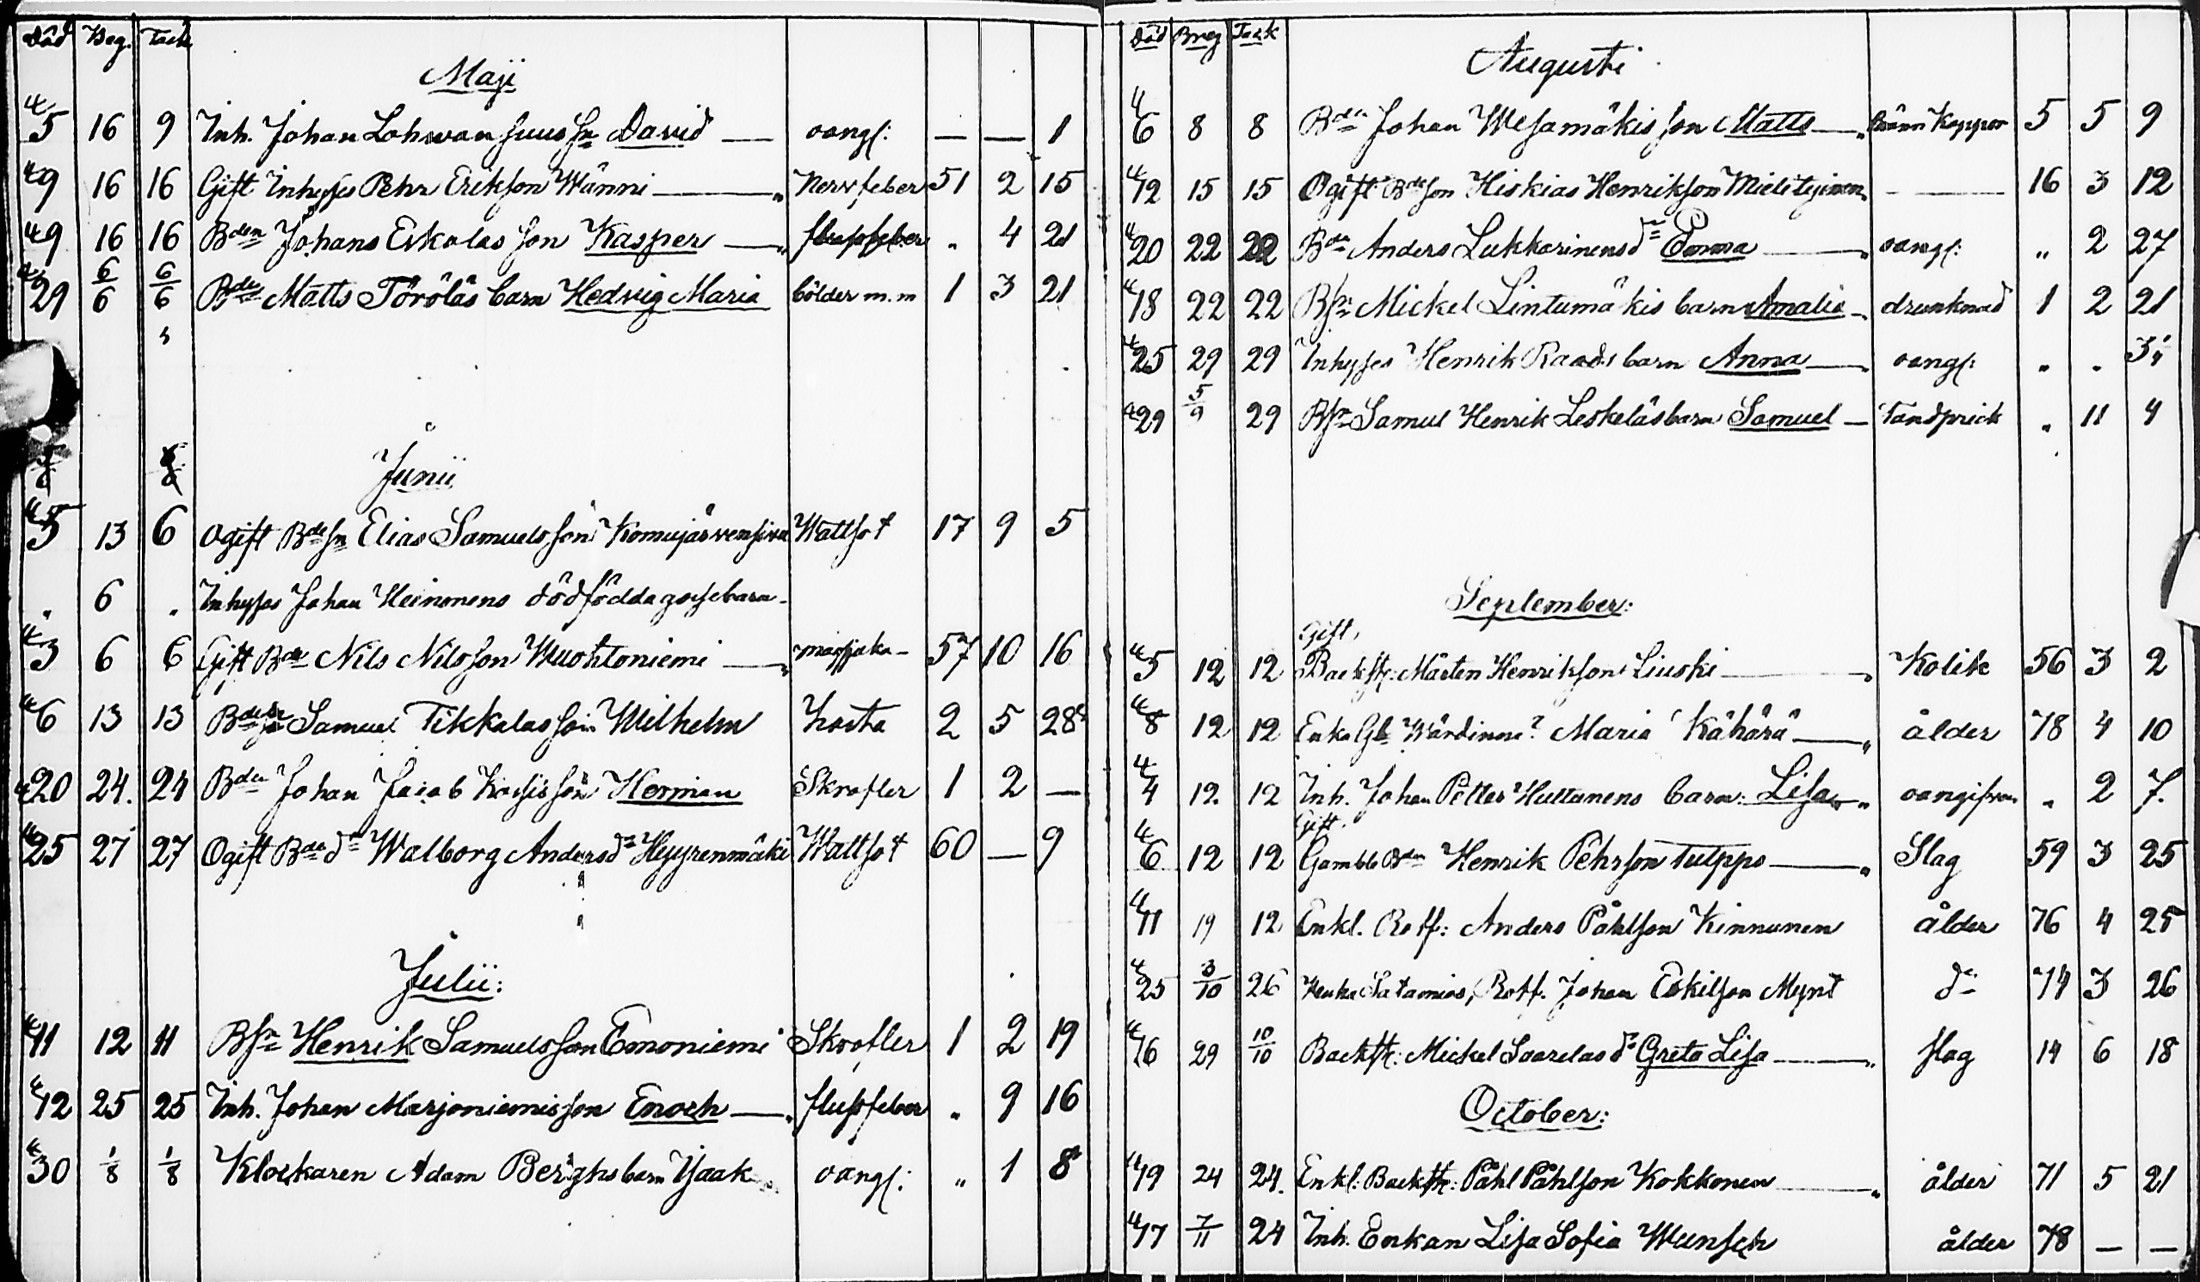 Död Beg. Tack
Maji
5 16 9 Inh. Johan Lohwansuus Sn David — oangf: — — 1
9 16 16 Gift Inhyses Pehr Erikson Wänni — Nervfeber 51 2 15
9 16 16 Bden Johans Eskolas son Kasper — flussfeber „ 4 21
29 6/6 6/6 Bden Matts Töröläs barn Hedvig Maria bölder m.m 1 3 21
Junii
5 13 6 Ogift Bdesn Elias Samuelsson Komujärvensivu Wattsot 17 9 5
„ 6 „ Inhyses Johan Heinonens dödfödda gossebarn
3 6 6 Gift Bde Nils Nilsson Wuohtoniemi — 57 10 16
6 13 13 Samuel Tikkalas son Wilhelm hosta 2 5 28
20 24. 24 Bden Johan Jacob son Herman Skrofler 1 2 —
25 27 27 Ogift Bded Walborg Andersdr Hyyrenmäki Wattsot 60 — 9
Julii:
11 12 11 Bsn Henrik Samuelsson Emoniemi Skrofler 1 2 19
12 25 25 Inh. Johan Marjoniemis son Enoch — flussfeber „ 9 16
30 1/8 1/8 Klockaren Adam Berghs barn Isaak oangf: „ 1 8
Död Breg Tack
Augusti
6 8 8 Bden Johan Wesamäkis son Matts — Koppor 5 5 9
12 15 15 Ogift Bdeson Hiskias Henrikson Mieliteinen — 16 3 12
20 22 22 Bde Anders Lukkarinens dr Emma — oangf: „ 2 27
18 22 22 Bsn Mickel Lintumäkis barn Amalia drunknad 1 2 21
25 29 29 Inhyses Henrik Raads barn Anna — oangf: „ „ 3
29 5/9 29 Bsn Samuel Henrik Leskeläs barn Samuel — Tandprick „ 11 4
September:
Gift,
5 12 12 Backst: Mårten Henrikson Liuski — Kolik 56 3 2
8 12 12 Enka Gle Wärdinna? Maria Kähärä — ålder 78 4 10
4 12. 12 Inh. Johan Petter Huttunens barn: Lisa „ 2 7.
Gift.
6 12 12 Gamble Bden Henrik Pehrson Tulppo — Slag 59 3 25
11 19 12 Enkl. Rotf: Anders Påhlson Kinnunen ålder 76 4 25
25 3/10 26 Rotf. Johan Eskilson Mynt do 74 3 26
16 29 10/10 Backst: Mickel Saarelas dr Greta Lisa — slag 14 6 18
October:
19 24 24. Enkl: Backst: Påhl Påhlson Kokkonen — ålder 71 5 21
17 7/11 24 Inh. Enkan Lisa Sofia Wunsch ålder 78 — —